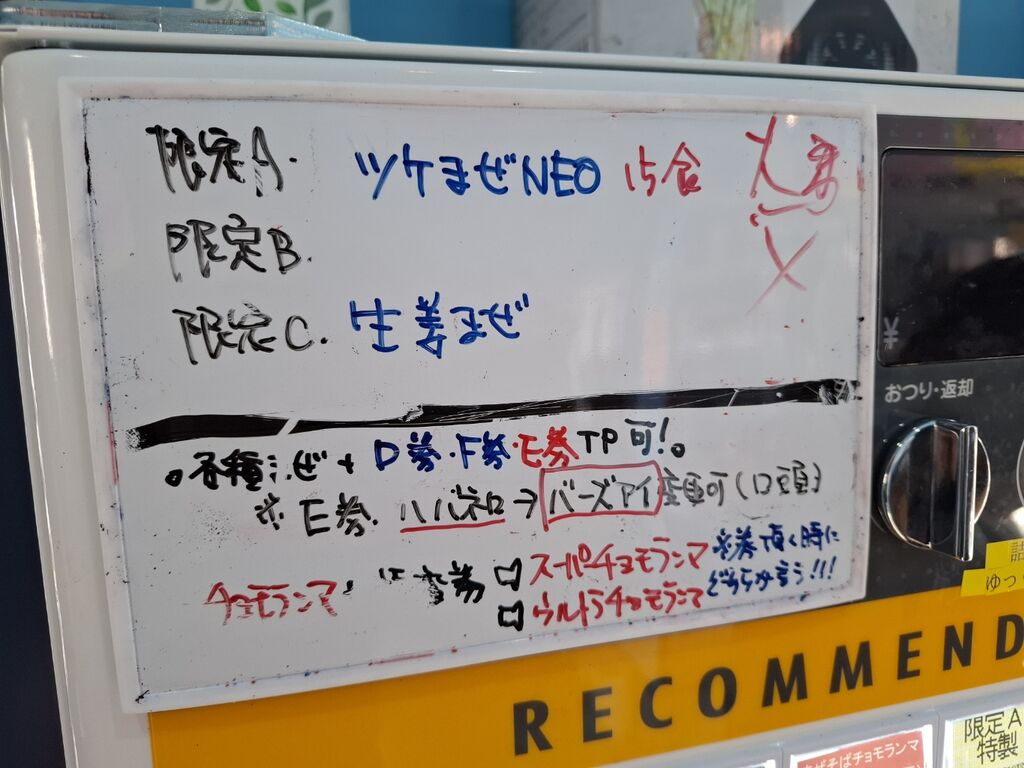 限定A. ツケまぜNEO 15食
限定B.
限定C. 生姜まぜ
。各種まぜ+D券・F券・E券TP可!。
※E券. ハバネロ→バーズアイ変更可(口頭)
チョモランマ 券 スーパーチョモランマ ※券頂く時に
ウルトラチョモランマ どちらか言う!!!
¥
おつり・返却
詰
ゆっ
RECOMMEND
まぜそばチョモランマ
限定A
特製